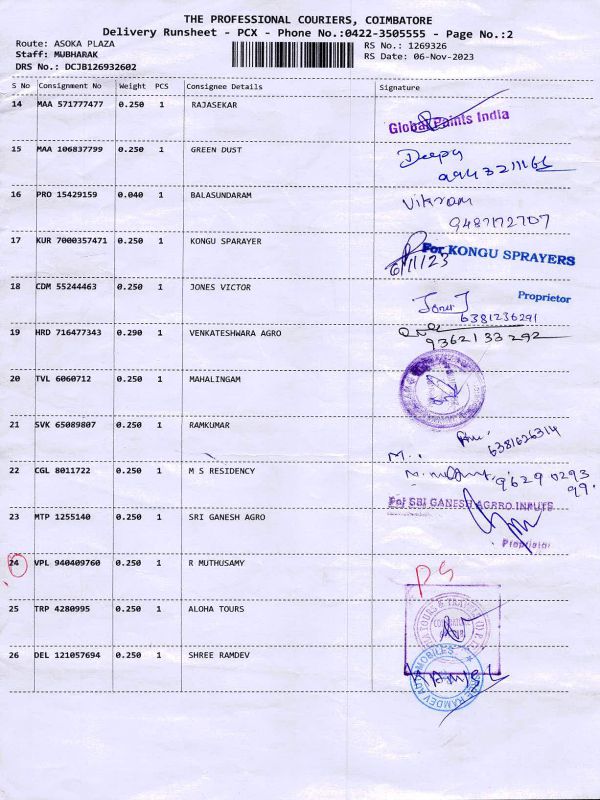 THE PROFESSIONAL COURIERS, COIMBATORE
Delivery Runsheet - PCX - Phone No.:0422-3505555 - Page No.:2
Route: ASOKA PLAZA
Staff: MUBHARAK
DRS No.: DCJB126932602
RS No.: 1269326
RS Date: 06-Nov-2023
S No Consignment No Weight PCS Consignee Details Signature
14 MAA 571777477 0.250 1 RAJASEKAR
Global Paints India
15 MAA 106837799 0.250 1 GREEN DUST
Deepa
16 PRO 15429159 0.040 1 BALASUNDARAM
Vikram
9487172707
17 KUR 7000357471 0.250 1 KONGU SPARAYER
For KONGU SPRAYERS
6/11/23
18 CDM 55244463 0.250 1 JONES VICTOR
Proprietor
6381236291
19 HRD 716477343 0.290 1 VENKATESHWARA AGRO
9362133292
20 TVL 6060712 0.250 1 MAHALINGAM
21 SVK 65089807 0.250 1 RAMKUMAR
6381626314
22 CGL 8011722 0.250 1 M S RESIDENCY
96290293
99.
23 MTP 1255140 0.250 1 SRI GANESH AGRO
For SRI GANESH AGRRO INPUTS
Proprietor
24 VPL 940409760 0.250 1 R MUTHUSAMY
25 TRP 4280995 0.250 1 ALOHA TOURS
TOURS & TRAVEL
26 DEL 121057694 0.250 1 SHREE RAMDEV
SHREE RAMDEV AUTOMOBILES